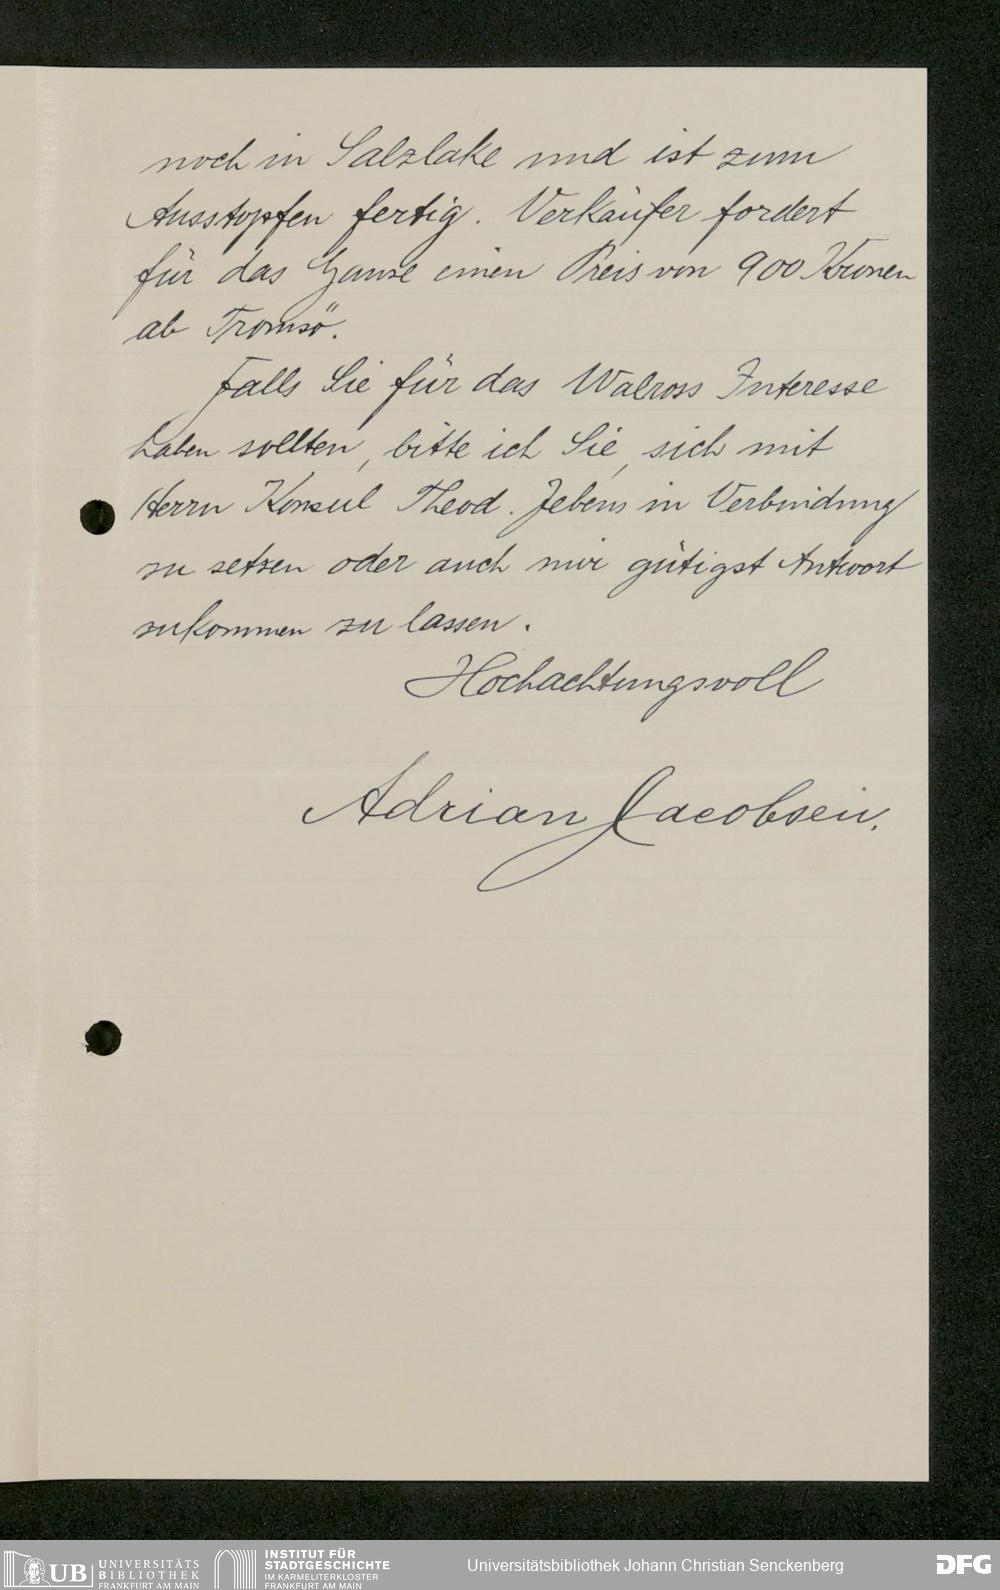 noch in Salzlake und ist zum
Ausstopfen fertig. Verkäufer fordert
für das Ganze einen Preis von 900 Kronen
ab Tromsö.
Falls Sie für das Walross Interesse
haben sollten, bitte ich Sie, sich mit
Herrn Konsul Theod. Jebens in Verbindung
zu setzen oder auch mir gütigst Antwort
zukommen zu lassen.
Hochachtungsvoll
Adrian Jacobsen.
UB UNIVERSITÄTS
BIBLIOTHEK
FRANKFURT AM MAIN
INSTITUT FÜR
STADTGESCHICHTE
IM KARMELITERKLOSTER
FRANKFURT AM MAIN
Universitätsbibliothek Johann Christian Senckenberg
DFG